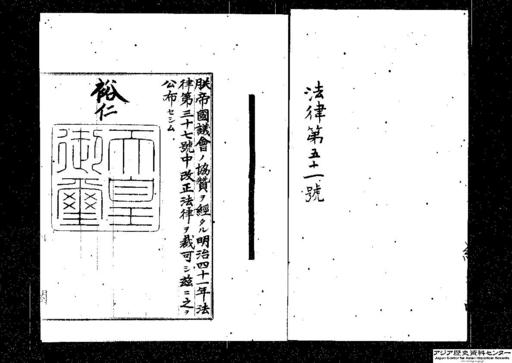 法律第五十一號
朕帝國議會ノ協贊ヲ經タル明治四十一年法
律第三十七號中改正法律ヲ裁可シ茲ニ之ヲ
公布セシム
裕仁
天皇
御璽
アジア歴史資料センター
Japan Center for Asian Historical Records